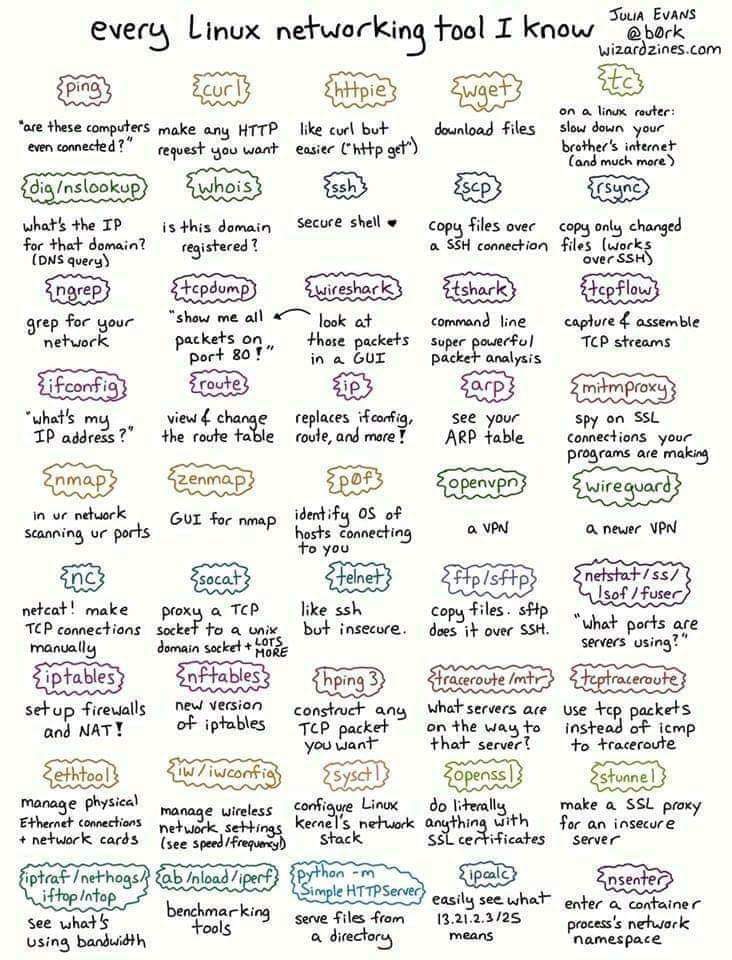 every Linux networking tool I know
JULIA EVANS
@b0rk
wizardzines.com
ping
"are these computers
even connected?"
curl
make any HTTP
request you want
httpie
like curl but
easier ("http get")
wget
download files
tc
on a linux router:
slow down your
brother's internet
(and much more)
dig/nslookup
what's the IP
for that domain?
(DNS query)
whois
is this domain
registered?
ssh
secure shell ♥
scp
copy files over
a SSH connection
rsync
copy only changed
files (works
over SSH)
ngrep
grep for your
network
tcpdump
"show me all
packets on
port 80!"
wireshark
look at
those packets
in a GUI
tshark
command line
super powerful
packet analysis
tcpflow
capture & assemble
TCP streams
ifconfig
"what's my
IP address?"
route
view & change
the route table
ip
replaces ifconfig,
route, and more!
arp
see your
ARP table
mitmproxy
spy on SSL
connections your
programs are making
nmap
in ur network
scanning ur ports
zenmap
GUI for nmap
p0f
identify OS of
hosts connecting
to you
openvpn
a VPN
wireguard
a newer VPN
nc
netcat! make
TCP connections
manually
socat
proxy a TCP
socket to a unix
domain socket + LOTS MORE
telnet
like ssh
but insecure.
ftp/sftp
copy files. sftp
does it over SSH.
netstat/ss/
lsof/fuser
"what ports are
servers using?"
iptables
set up firewalls
and NAT!
nftables
new version
of iptables
hping3
construct any
TCP packet
you want
traceroute/mtr
what servers are
on the way to
that server?
tcptraceroute
use tcp packets
instead of icmp
to traceroute
ethtool
manage physical
Ethernet connections
+ network cards
iw/iwconfig
manage wireless
network settings
(see speed/frequency!)
sysctl
configure Linux
kernel's network
stack
openssl
do literally
anything with
SSL certificates
stunnel
make a SSL proxy
for an insecure
server
iptraf/nethogs/
iftop/ntop
see what's
using bandwidth
ab/nload/iperf
benchmarking
tools
python -m
SimpleHTTPServer
serve files from
a directory
ipcalc
easily see what
13.21.2.3/25
means
nsenter
enter a container
process's network
namespace